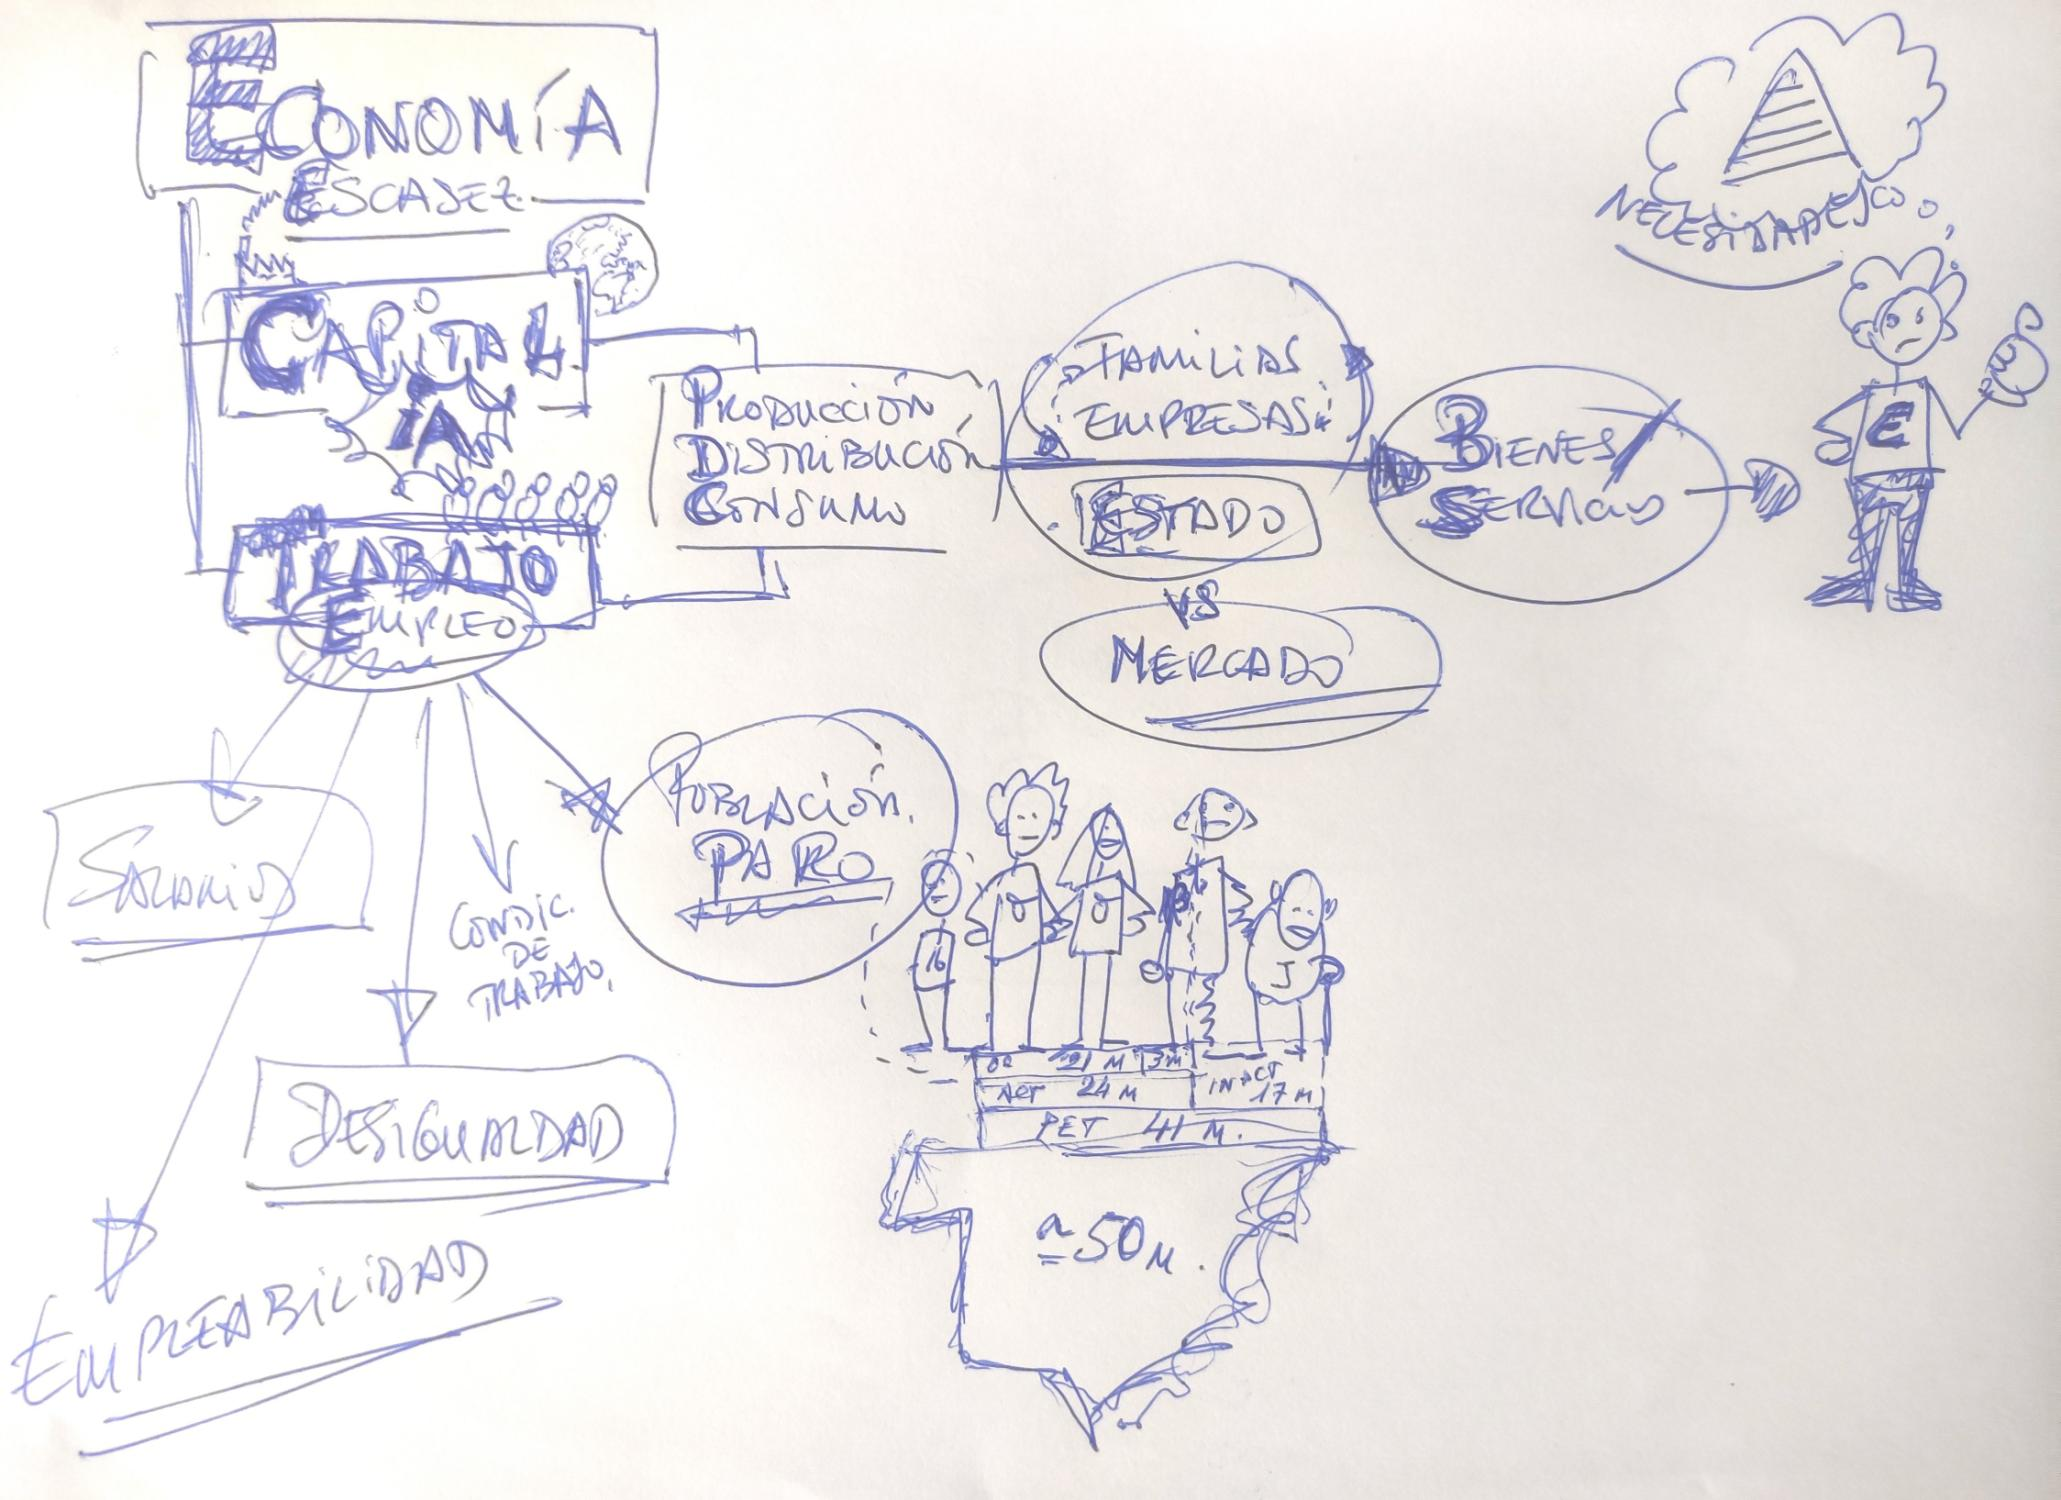 ECONOMÍA
ESCASEZ
CAPITAL
IA
TRABAJO
EMPLEO
PRODUCCIÓN
DISTRIBUCIÓN
CONSUMO
FAMILIAS
EMPRESAS
ESTADO
VS
MERCADO
BIENES/
SERVICIOS
NECESIDADES
E
SALARIOS
CONDIC.
DE
TRABAJO.
DESIGUALDAD
EMPLEABILIDAD
POBLACIÓN.
PARO
16
O
O
P
J
OC 21 M 3M
ACT 24 M
INACT
17 M
PET 41 M.
≃50 M.